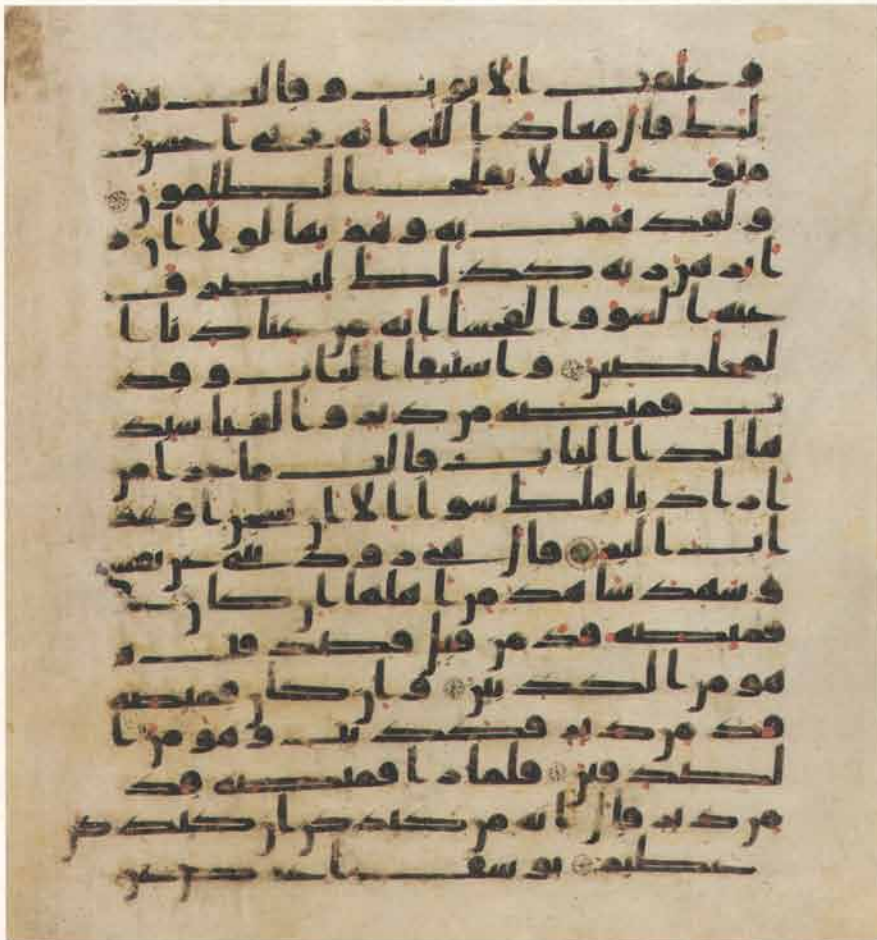 وغلقت الابوب وقالت هيت
لك قال معاذ الله انه ربي احسن
مثوي انه لا يفلح الظلمون
ولقد همت به وهم بها لولا ان ر
ا برهن ربه كذلك لنصرف
عنه السو والفحشا انه من عبادنا ا
لمخلصين واستبقا الباب وقد
ت قميصه من دبر والفيا سيد
ها لدا الباب قالت ما جزا من
اراد باهلك سوا الا ان يسجن او عذ
اب اليم قال هي رودتني عن نفسي
وشهد شاهد من اهلها ان كان
قميصه قد من قبل فصدقت و
هو من الكذبين وان كان قميصه
قد من دبر فكذبت وهو من ا
لصدقين فلما را قميصه قد
من دبر قال انه من كيدكن ان كيدكن
عظيم يوسف اعرض عن